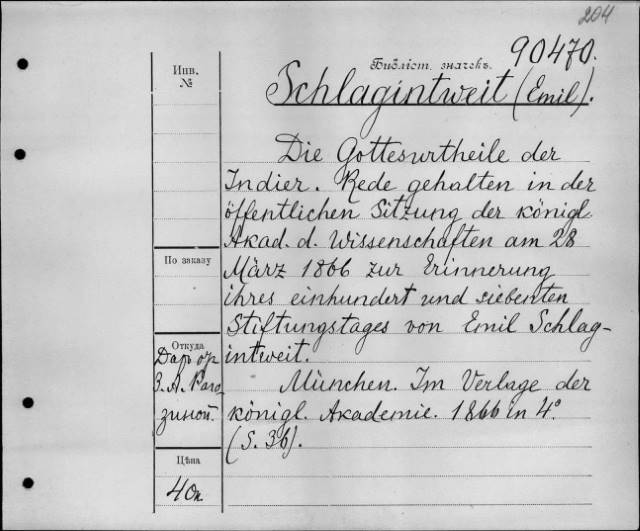 204
90470.
Библіот. значекъ.
Schlagintweit (Emil).
Инв.
№
Die Gottesurtheile der
Indier. Rede gehalten in der
öffentlichen Sitzung der königl.
Akad. d. Wissenschaften am 28
März 1866 zur Erinnerung
ihres einhundert und siebenten
Stiftungstages von Emil Schlag-
intweit.
München. Im Verlage der
königl. Akademie. 1866 in 4°.
(S. 36).
По заказу
Откуда
Даръ отъ
З. А. Раго
зиной.
Цѣна
40к.